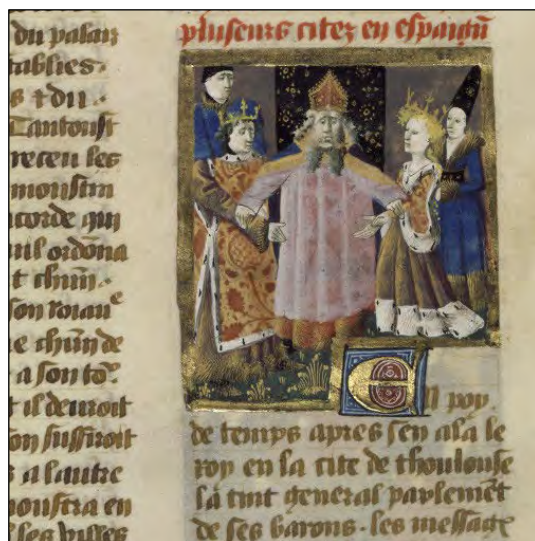 du palais
tablies.
s & du.
Tantoust
receu les
monstra
corde qui
uil ordōna
t chūn.
son roiaue
e chūn de
a son to.
t il deuroit
on suffiroit
s a lautre
monstra en
les villes
pluseurs citez en espaign̄
En poy
de temps apres sen ala le
roy en la cite de thoulouse
la tint general parlemēt
de ses barons. les message